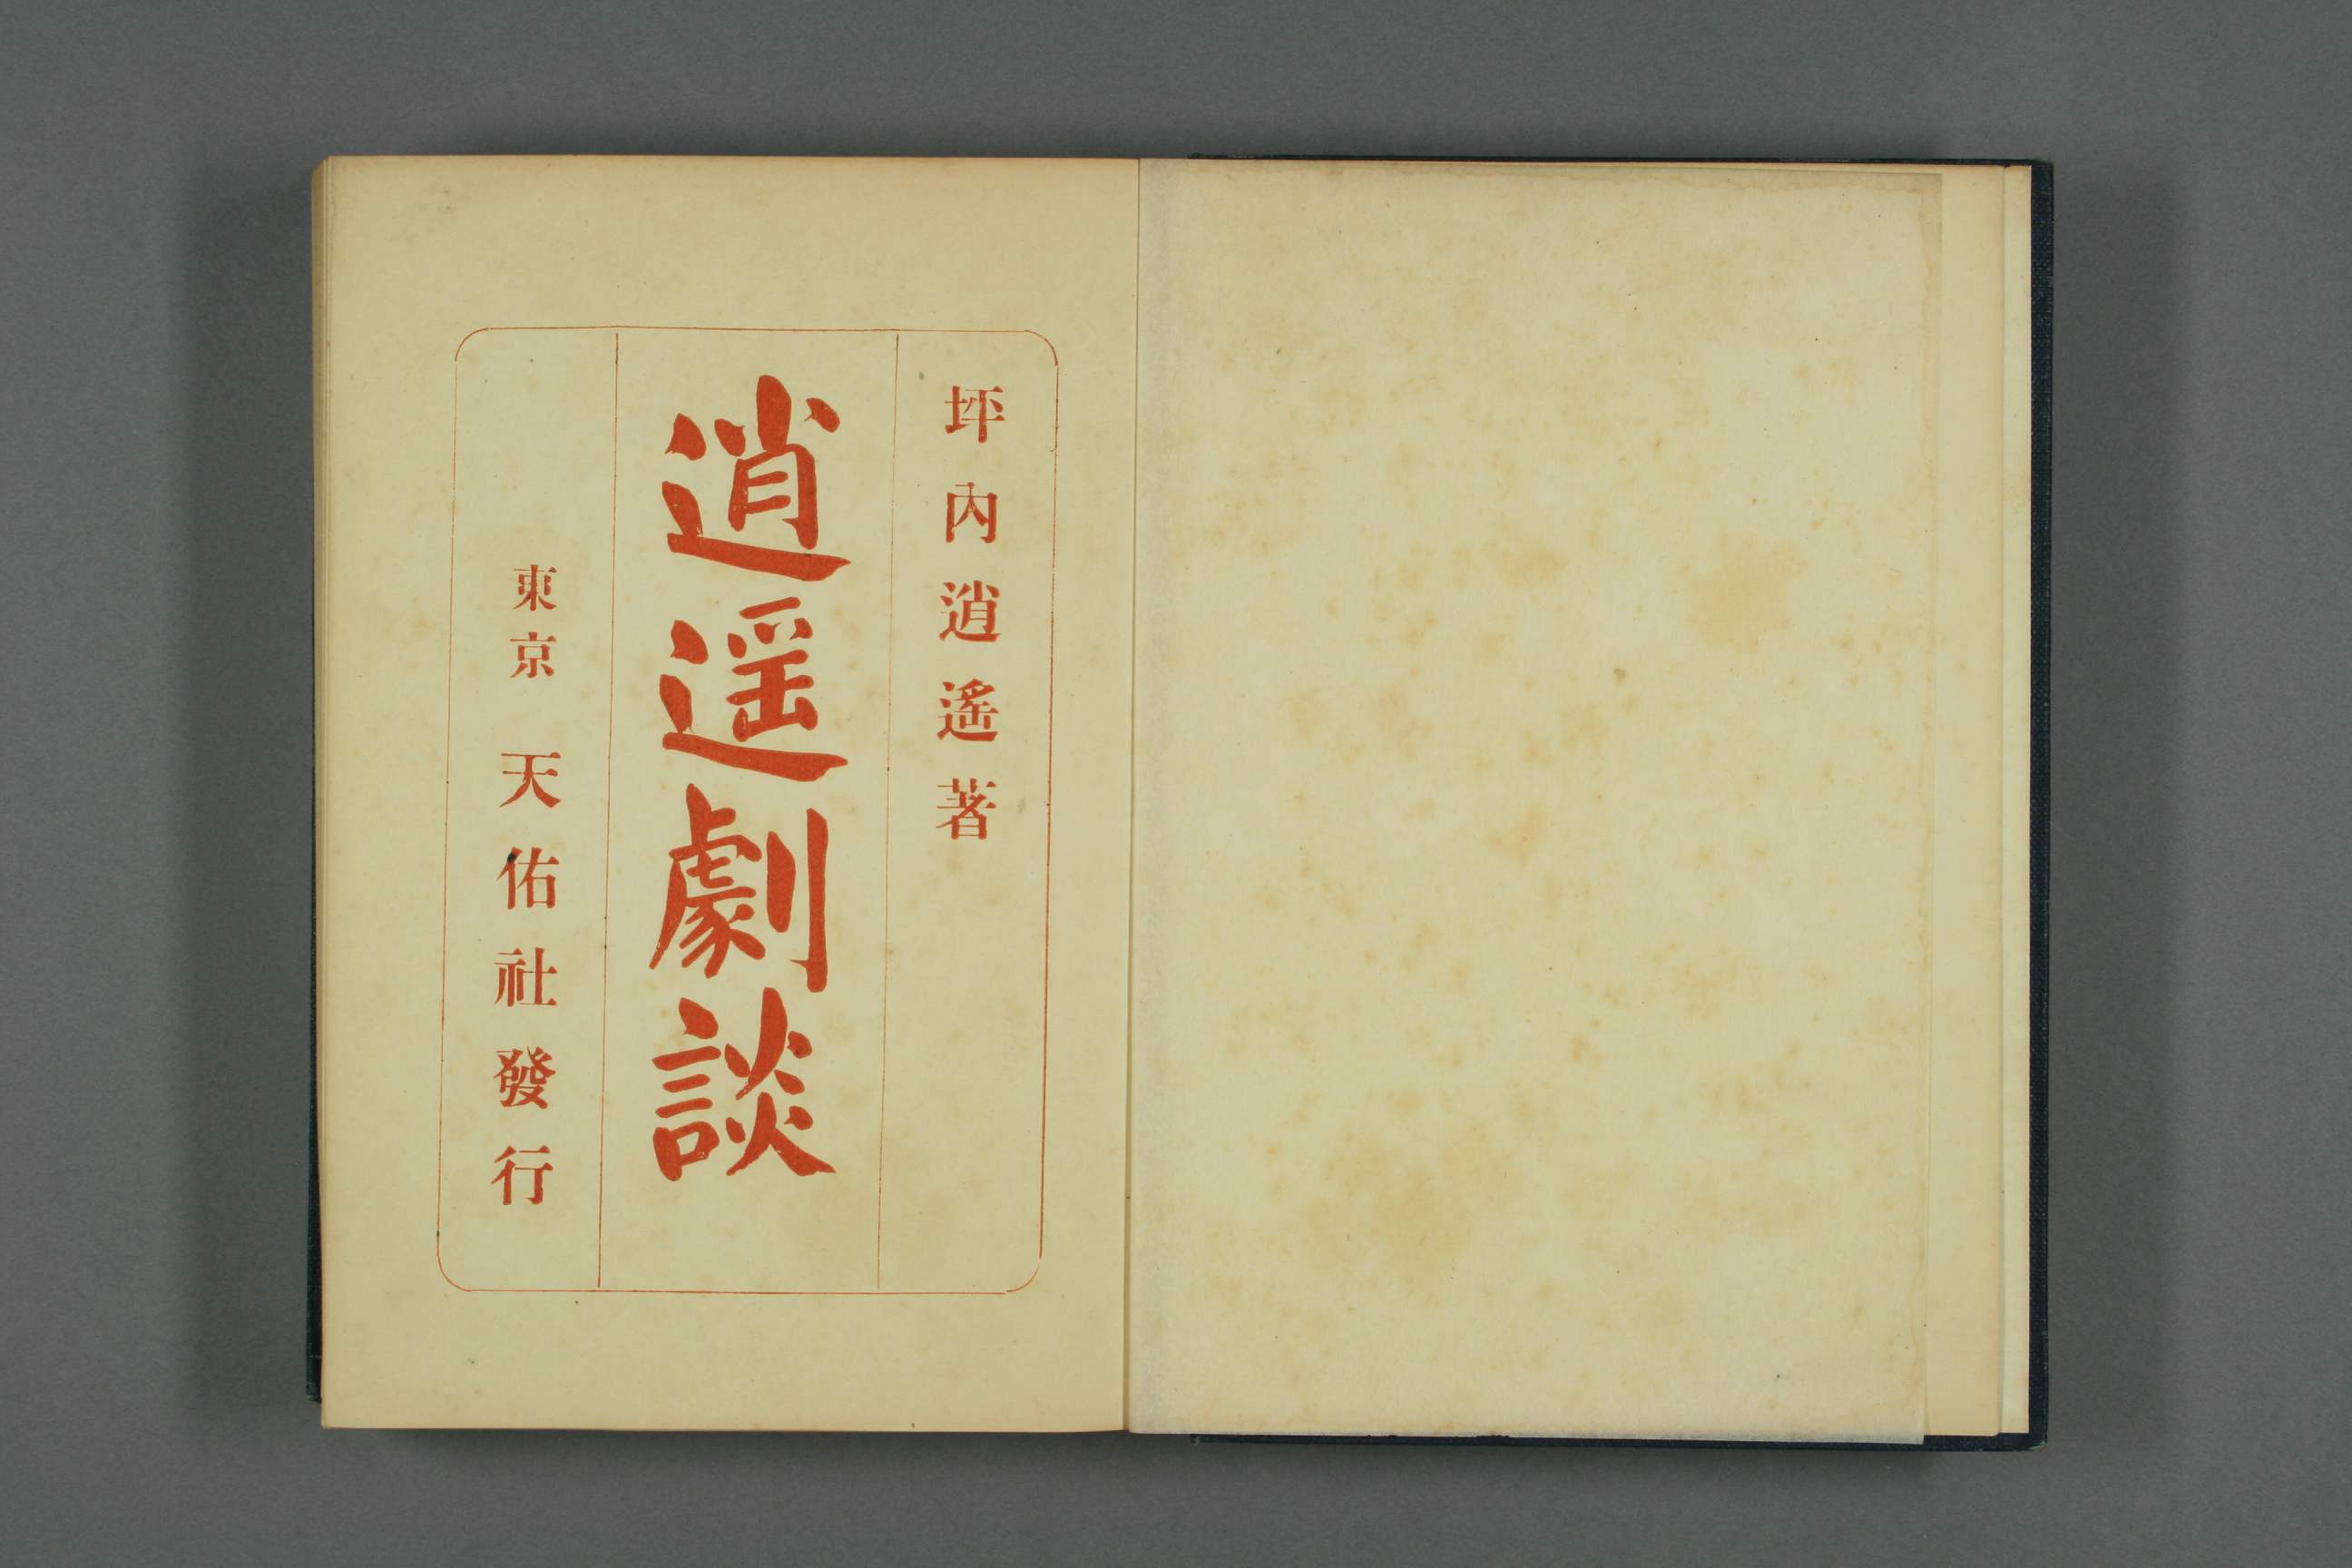 坪內逍遙著
逍遥劇談
東京 天佑社發行